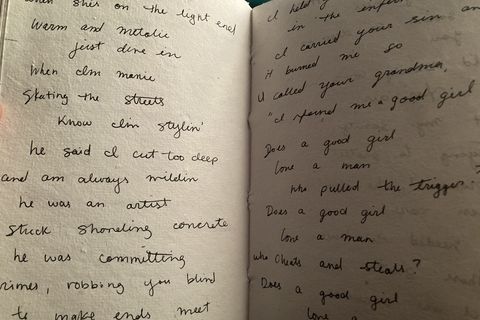 when she's on the tight end
Warm and metalic
Just dive in
When I'm manic
Skating the streets
Know I'm stylin'
he said I cut too deep
and am always wildin
he was an artist
Stuck shoveling concrete
he was committing
crimes, robbing you blind
to make ends meet
I held y
in the infern
I carried your sin an
it burned me so
U called your grandma,
"I found me a good girl
Does a good girl
love a man
who pulled the trigger?
Does a good girl
love a man
who cheats and steals?
Does a good girl
love a